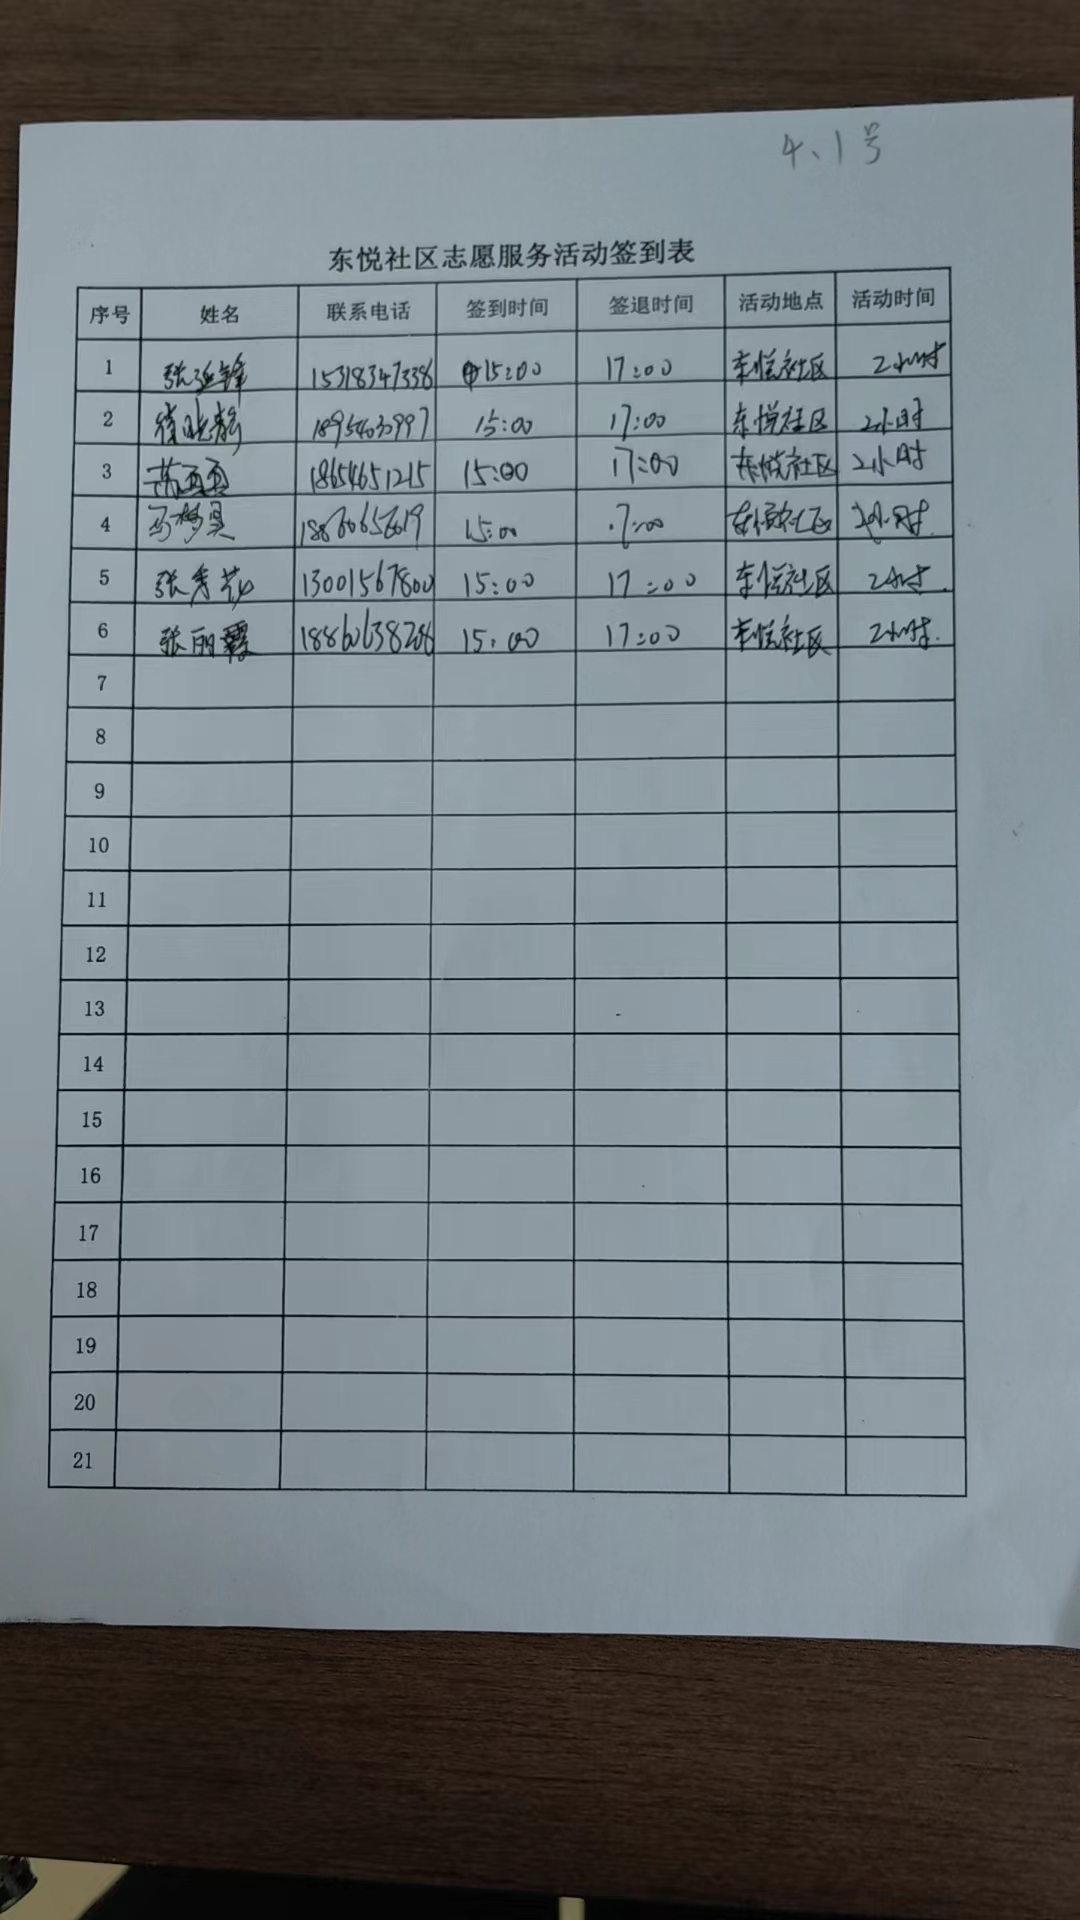 4、1号
东悦社区志愿服务活动签到表
序号 姓名 联系电话 签到时间 签退时间 活动地点 活动时间
1 张延锋 15318347338 15:00 17:00 东悦社区 2小时
2 徐晓静 18954030997 15:00 17:00 东悦社区 2小时
3 苏真真 18654651215 15:00 17:00 东悦社区 2小时
4 马梦昊 15:00 17:00 东悦社区 2小时
5 张秀花 13001567800 15:00 17:00 东悦社区 2小时
6 张丽霞 18860638286 15:00 17:00 东悦社区 2小时
7
8
9
10
11
12
13
14
15
16
17
18
19
20
21